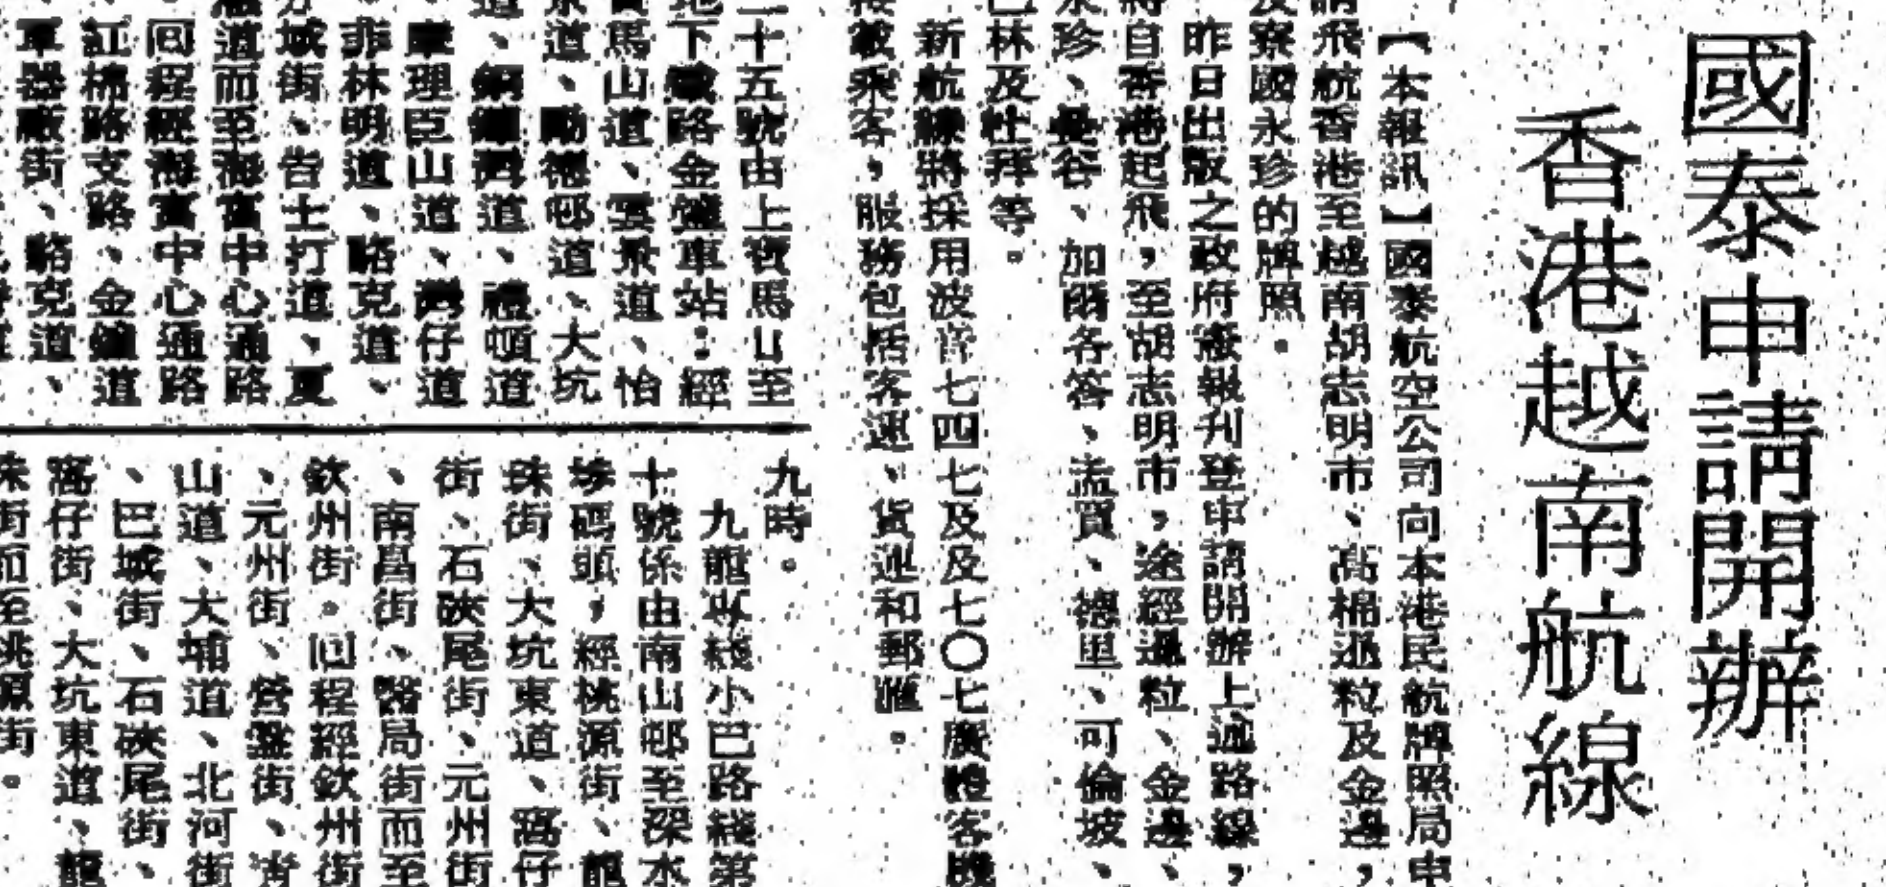 國泰申請開辦
香港越南航線
【本報訊】國泰航空公司向本港民航牌照局申
請飛航香港至越南胡志明市、高棉暹粒及金邊，
及寮國永珍的牌照。
昨日出版之政府憲報刊登申請開辦上述路線，
將自香港起飛，至胡志明市，途經暹粒、金邊、
永珍、曼谷、加爾各答、孟買、德里、可倫坡、
巴林及杜拜等。
新航線將採用波音七四七及及七〇七廣體客機
接載乘客，服務包括客運、貨運和郵匯。
二十五號由上寶馬山至
地下鐵路金鐘車站：經
寶馬山道、雲景道、怡
景道、勵德邨道、大坑
道、銅鑼灣道、禮頓道
、摩理臣山道、灣仔道
、菲林明道、駱克道、
分城街、告士打道、夏
慤道而至海富中心通路
。回程經海富中心通路
、紅棉路支路、金鐘道
、軍器廠街、駱克道、
九時。
九龍專綫小巴路綫第
十號係由南山邨至深水
埗碼頭，經桃源街、龍
珠街、大坑東道、窩仔
街、石硤尾街、元州街
、南昌街、醫局街而至
欽州街。回程經欽州街
、元州街、營盤街、青
山道、大埔道、北河街
、巴城街、石硤尾街、
窩仔街、大坑東道、龍
珠街而至桃源街。